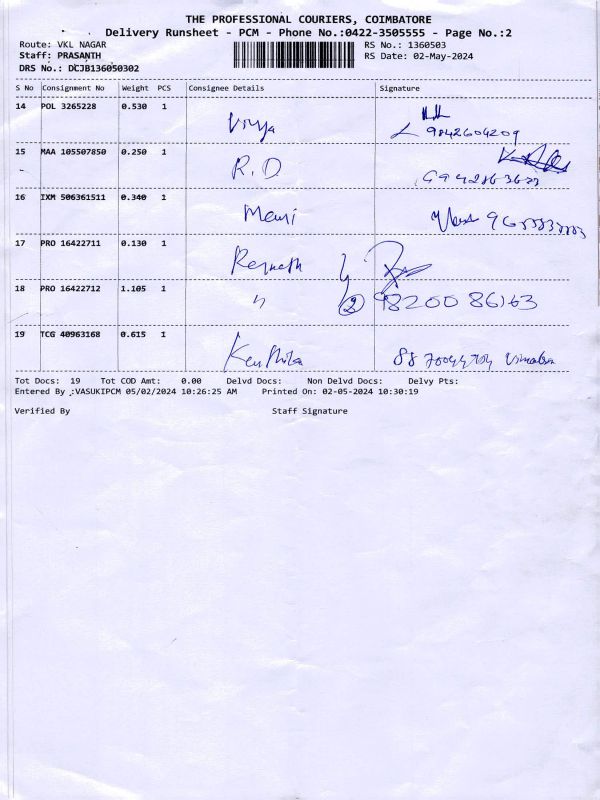 THE PROFESSIONAL COURIERS, COIMBATORE
Delivery Runsheet - PCM - Phone No.:0422-3505555 - Page No.:2
Route: VKL NAGAR RS No.: 1360503
Staff: PRASANTH RS Date: 02-May-2024
DRS No.: DCJB136050302
S No Consignment No Weight PCS Consignee Details Signature
14 POL 3265228 0.530 1 9842604209
15 MAA 105507850 0.250 1 R.D
16 IXM 506361511 0.340 1 Mani
17 PRO 16422711 0.130 1
18 PRO 16422712 1.105 1 " 2 9820086163
19 TCG 40963168 0.615 1
Tot Docs: 19 Tot COD Amt: 0.00 Delvd Docs: Non Delvd Docs: Delvy Pts:
Entered By :VASUKIPCM 05/02/2024 10:26:25 AM Printed On: 02-05-2024 10:30:19
Verified By Staff Signature